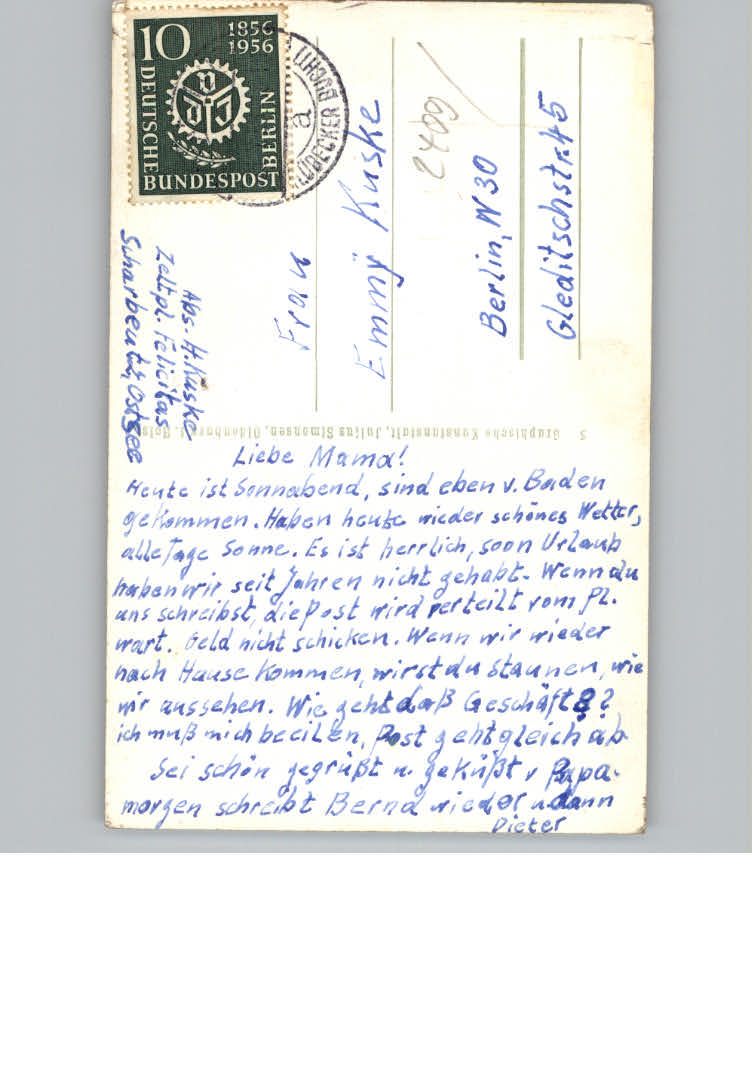 10
1856
1956
DEUTSCHE
BUNDESPOST
BERLIN
LÜBECKER BUCHT
a
2409
Frau
Emmy Kuske
Berlin, W 30
Gleditschstr. 45
Abs. H. Kuske
Zeltpl. Felicitas
Scharbeutz, Ostsee
S Graphische Kunstanstalt, Julius Simonsen, Oldenburg i. Holst.
Liebe Mama!
Heute ist Sonnabend, sind eben v. Baden
gekommen. Haben heute wieder schönes Wetter,
alle Tage Sonne. Es ist herrlich, soon Urlaub
haben wir seit Jahren nicht gehabt. Wenn du
uns schreibst, die Post wird verteilt vom Pl.
wart. Geld nicht schicken. Wenn wir wieder
nach Hause kommen, wirst du staunen, wie
wir aussehen. Wie geht daß Geschäft?
ich muß mich beeilen, Post geht gleich ab
Sei schön gegrüßt u. geküßt v Papa.
morgen schreibt Bernd wieder u. dann
Dieter